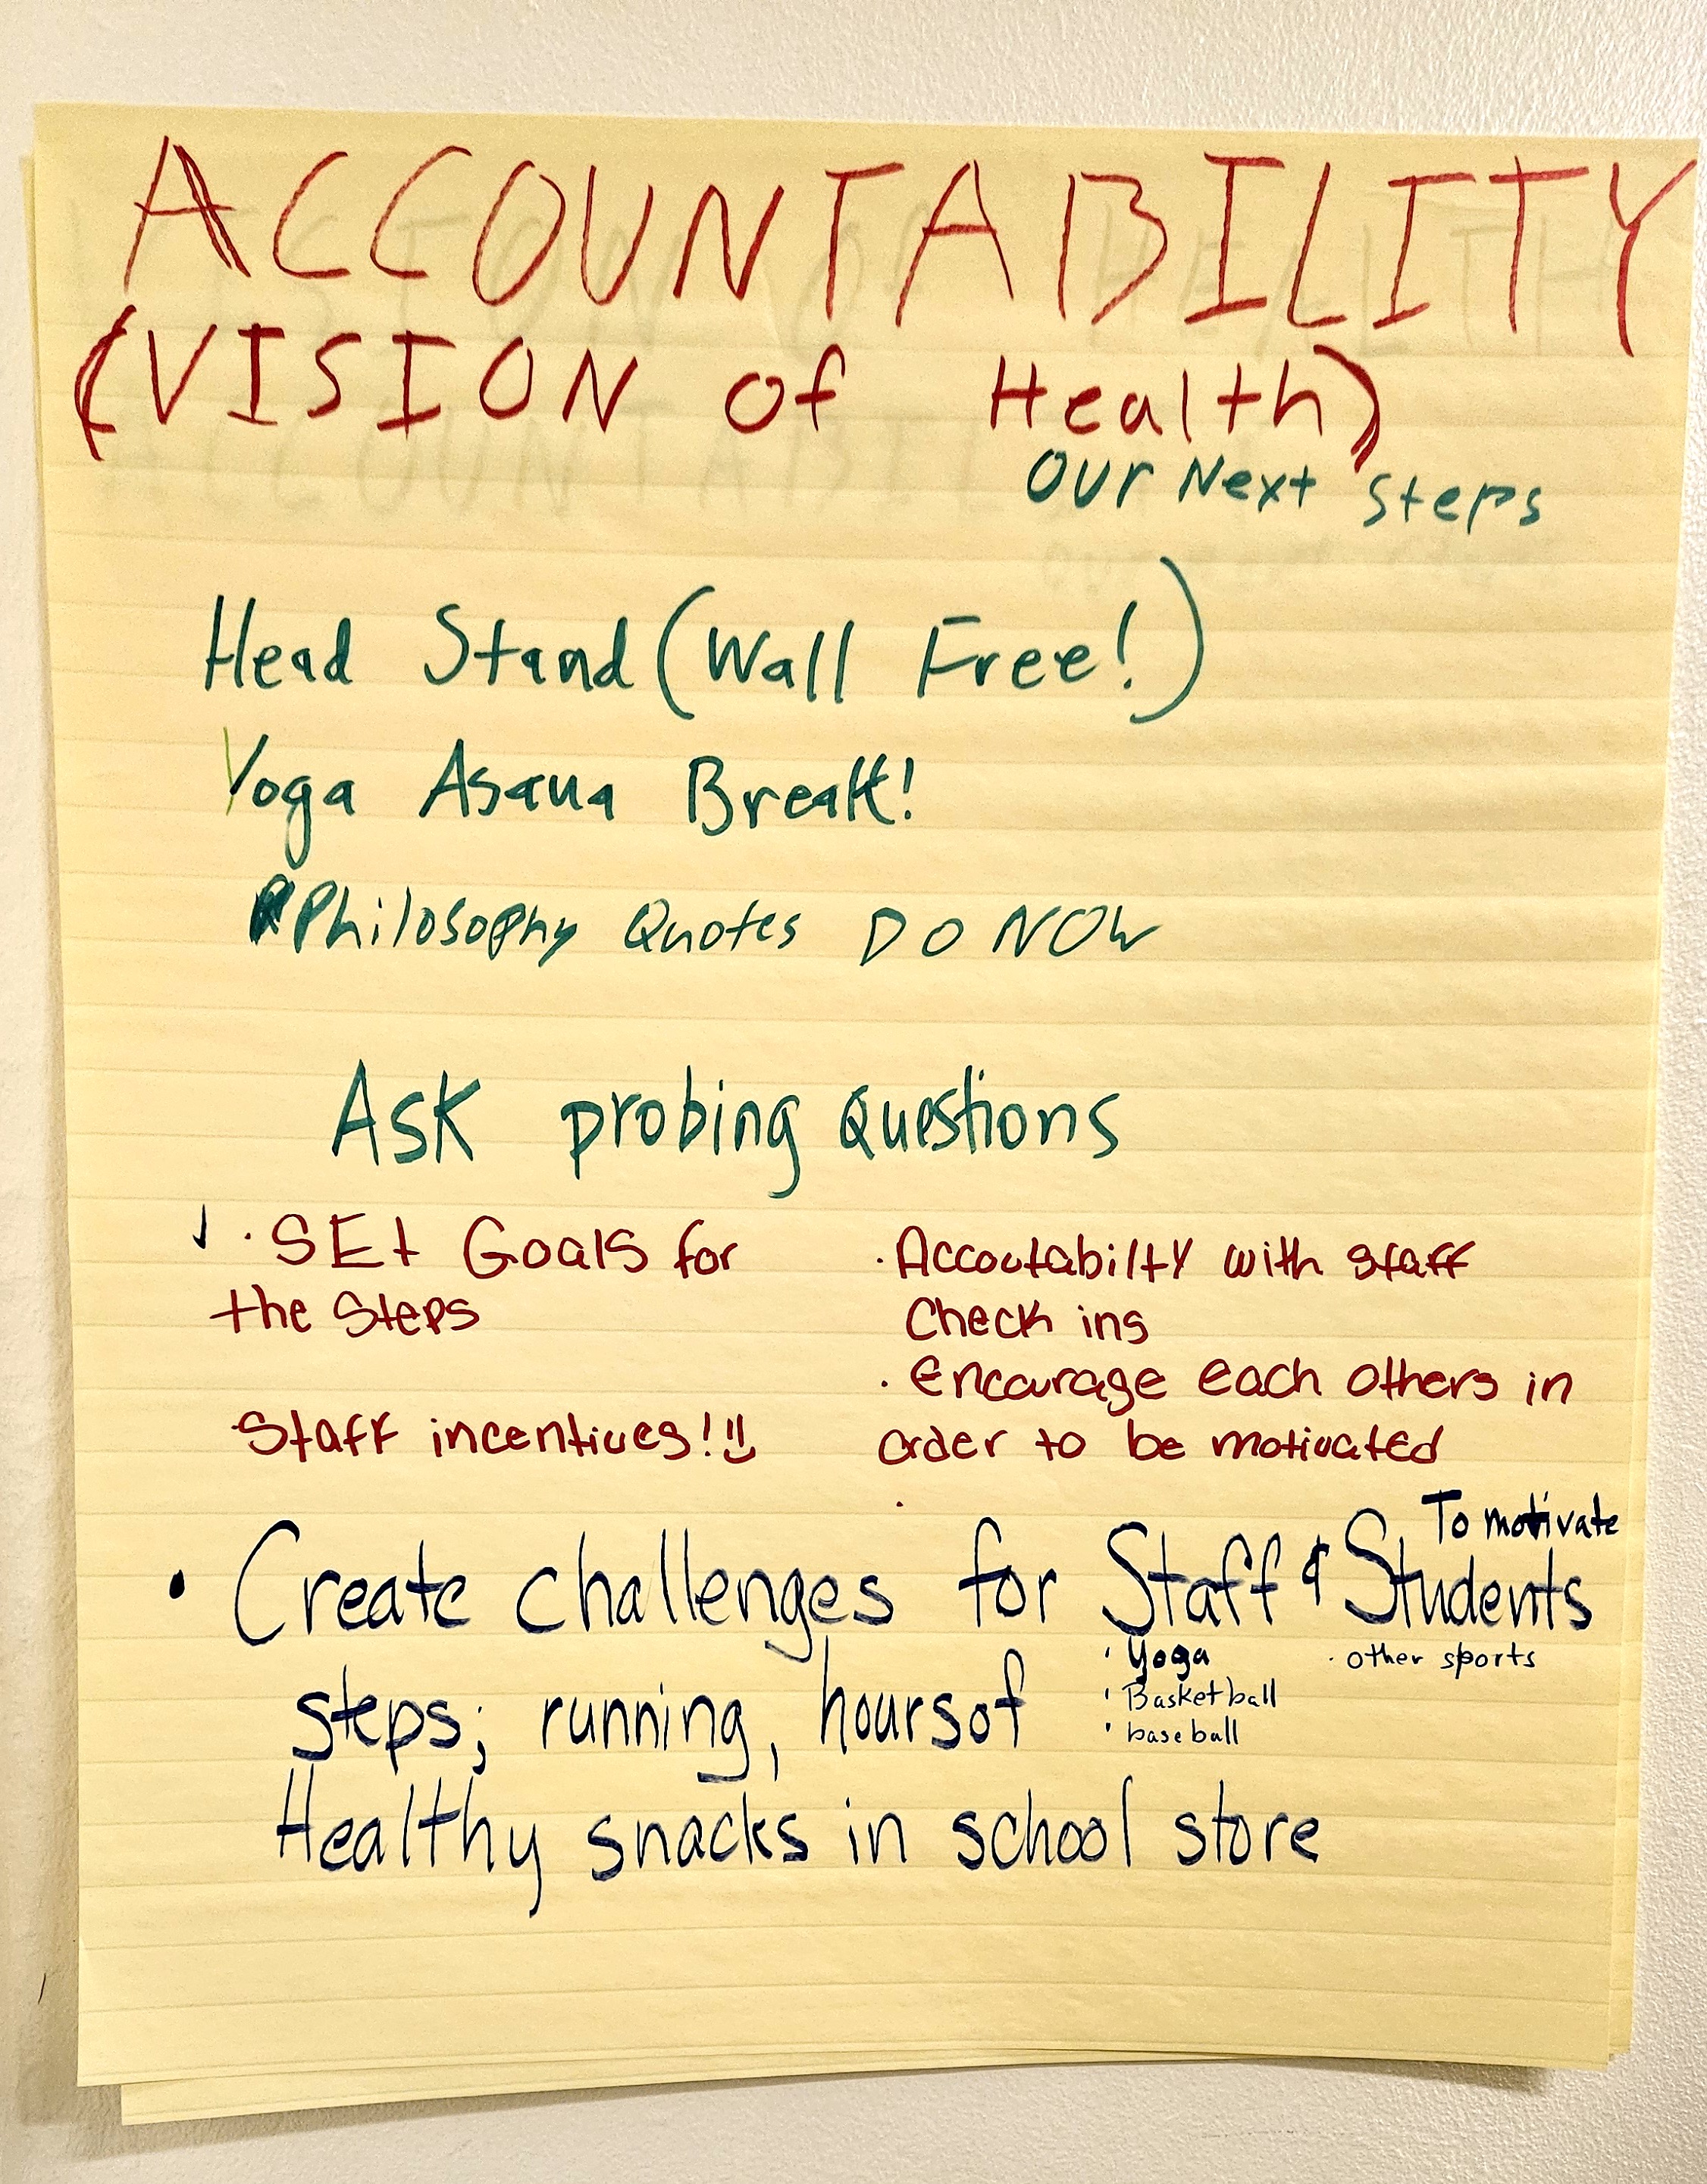 ACCOUNTABILITY
(VISION of Health)
Our Next Steps
Head Stand (Wall Free!)
Yoga Asana Break!
Philosophy Quotes DO NOW
Ask probing questions
· SEt Goals for
the Steps
Staff incentives!
· Accoutabilty with staff
Check ins
· Encourage each others in
order to be motivated
To motivate
• Create challenges for Staff & Students
steps; running, hours of
· Yoga
· Basketball
· baseball
· other sports
Healthy snacks in school store